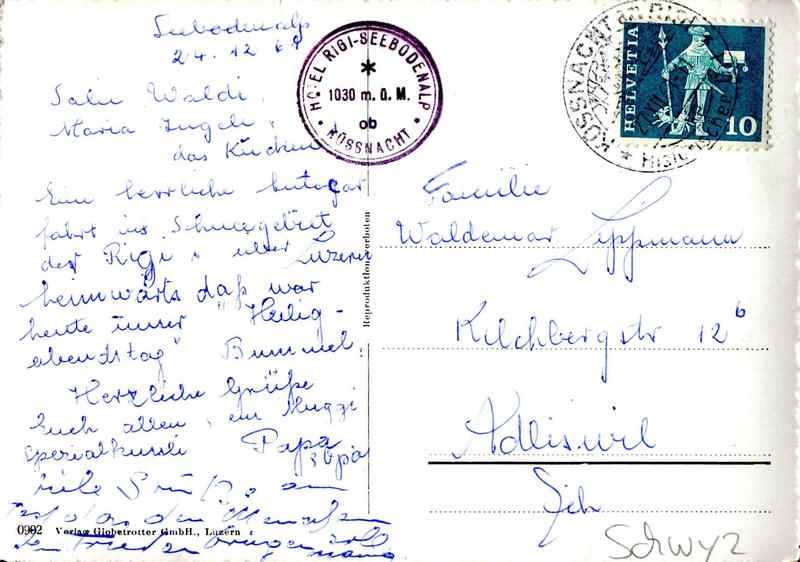 Seebodenalp
24.12.6
Salü Waldi,
Maria
das Kücken
Eine herrliche Autocar
fahrt ins Schneegebiet
der Rigi, über Luzern
heimwärts daß war
heute unser "Heilig-
abendstag" Bummel.
Herzliche Grüße
Euch allen, ein Muggi
Spezialkussli Papa
Opa
viele Grüße am
den Menschen
den Frieden bringen soll
Mama
HOTEL RIGI-SEEBODENALP
1030 m. ü. M.
ob
KÜSSNACHT
KÜSSNACHT AM RIGI
HELVETIA
10
Reproduktion verboten
Familie
Waldemar Lippmann
Kilchbergstr 12b
Adliswil
Zch
Schwyz
0992 Verlag Globetrotter GmbH., Luzern